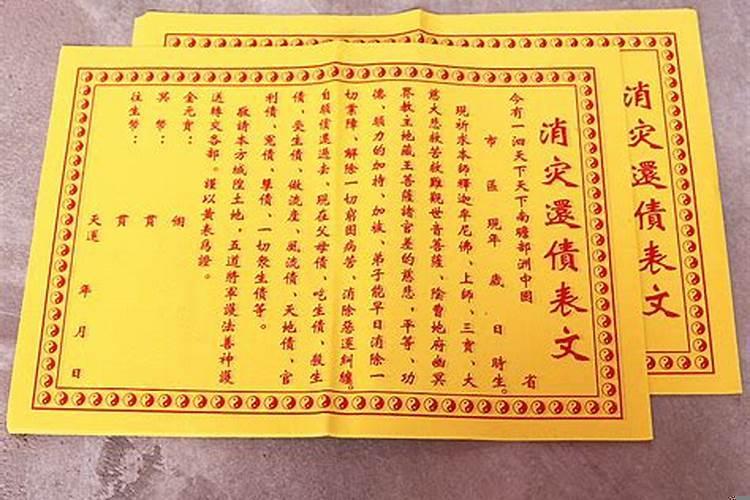 消灾還債表文
今有一泗天下天下南瞻部洲中國 省
市 區 現年 歲 日 時生。
現祈求本師釋迦牟尼佛、上師、三寶、大
慈大悲救苦救難觀世音菩薩、陰曹地府幽冥
界教主地藏王菩薩諸官差的慈悲，平等、功
德、願力的加持、加被、弟子能早日消除一
切業障、解除一切窮困病苦、消除惡運糾纏。
自願償還過去、現在父母債、吃生債、殺生
債、受生債、做流産、風流債、天地債、官
利債、冤債、孽債、一切衆生債等。
敬請本方城隍土地，五道將軍護法善神護
送轉交各部。謹以黃表爲證。
金元寶： 綑
冥幣： 貫
往生幣： 貫
天運 年 月 日
消灾還債表文